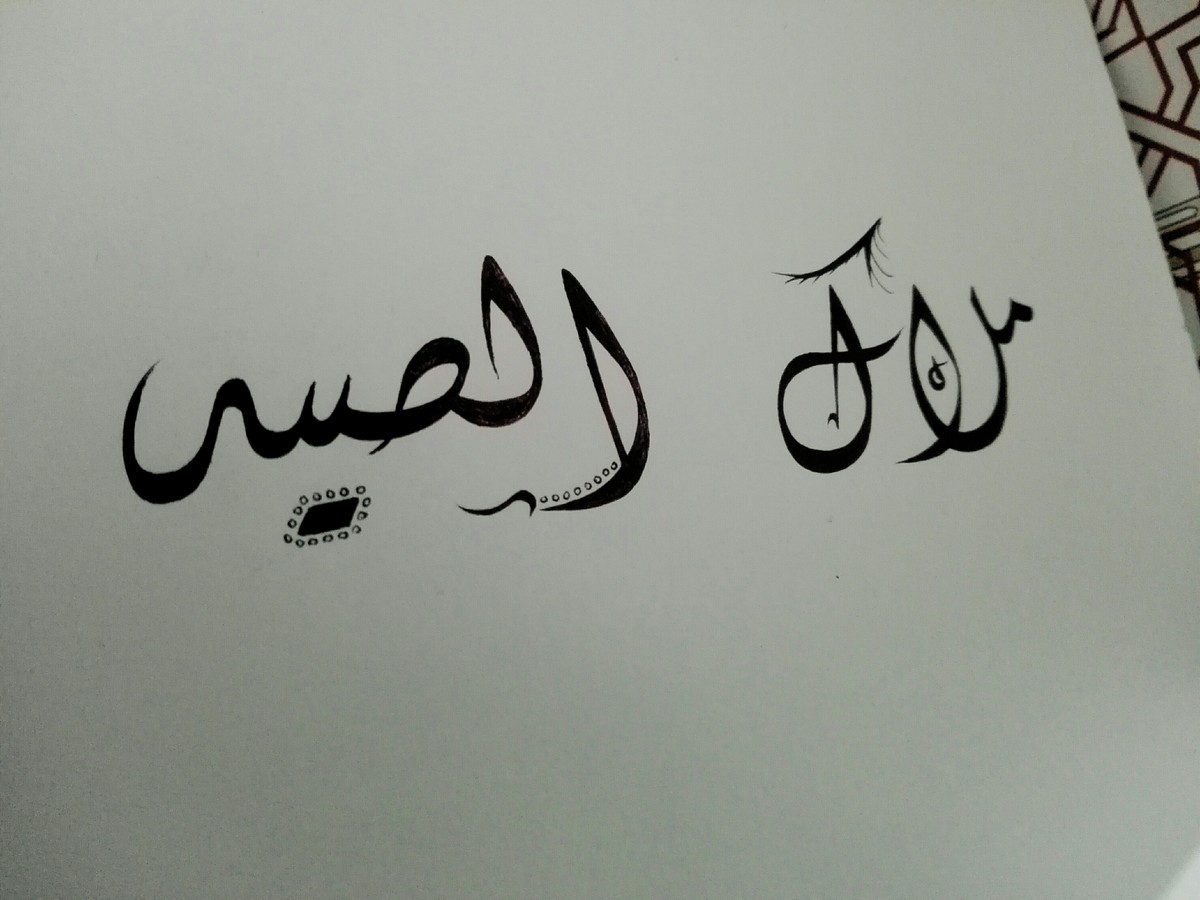 ملاك الصبي